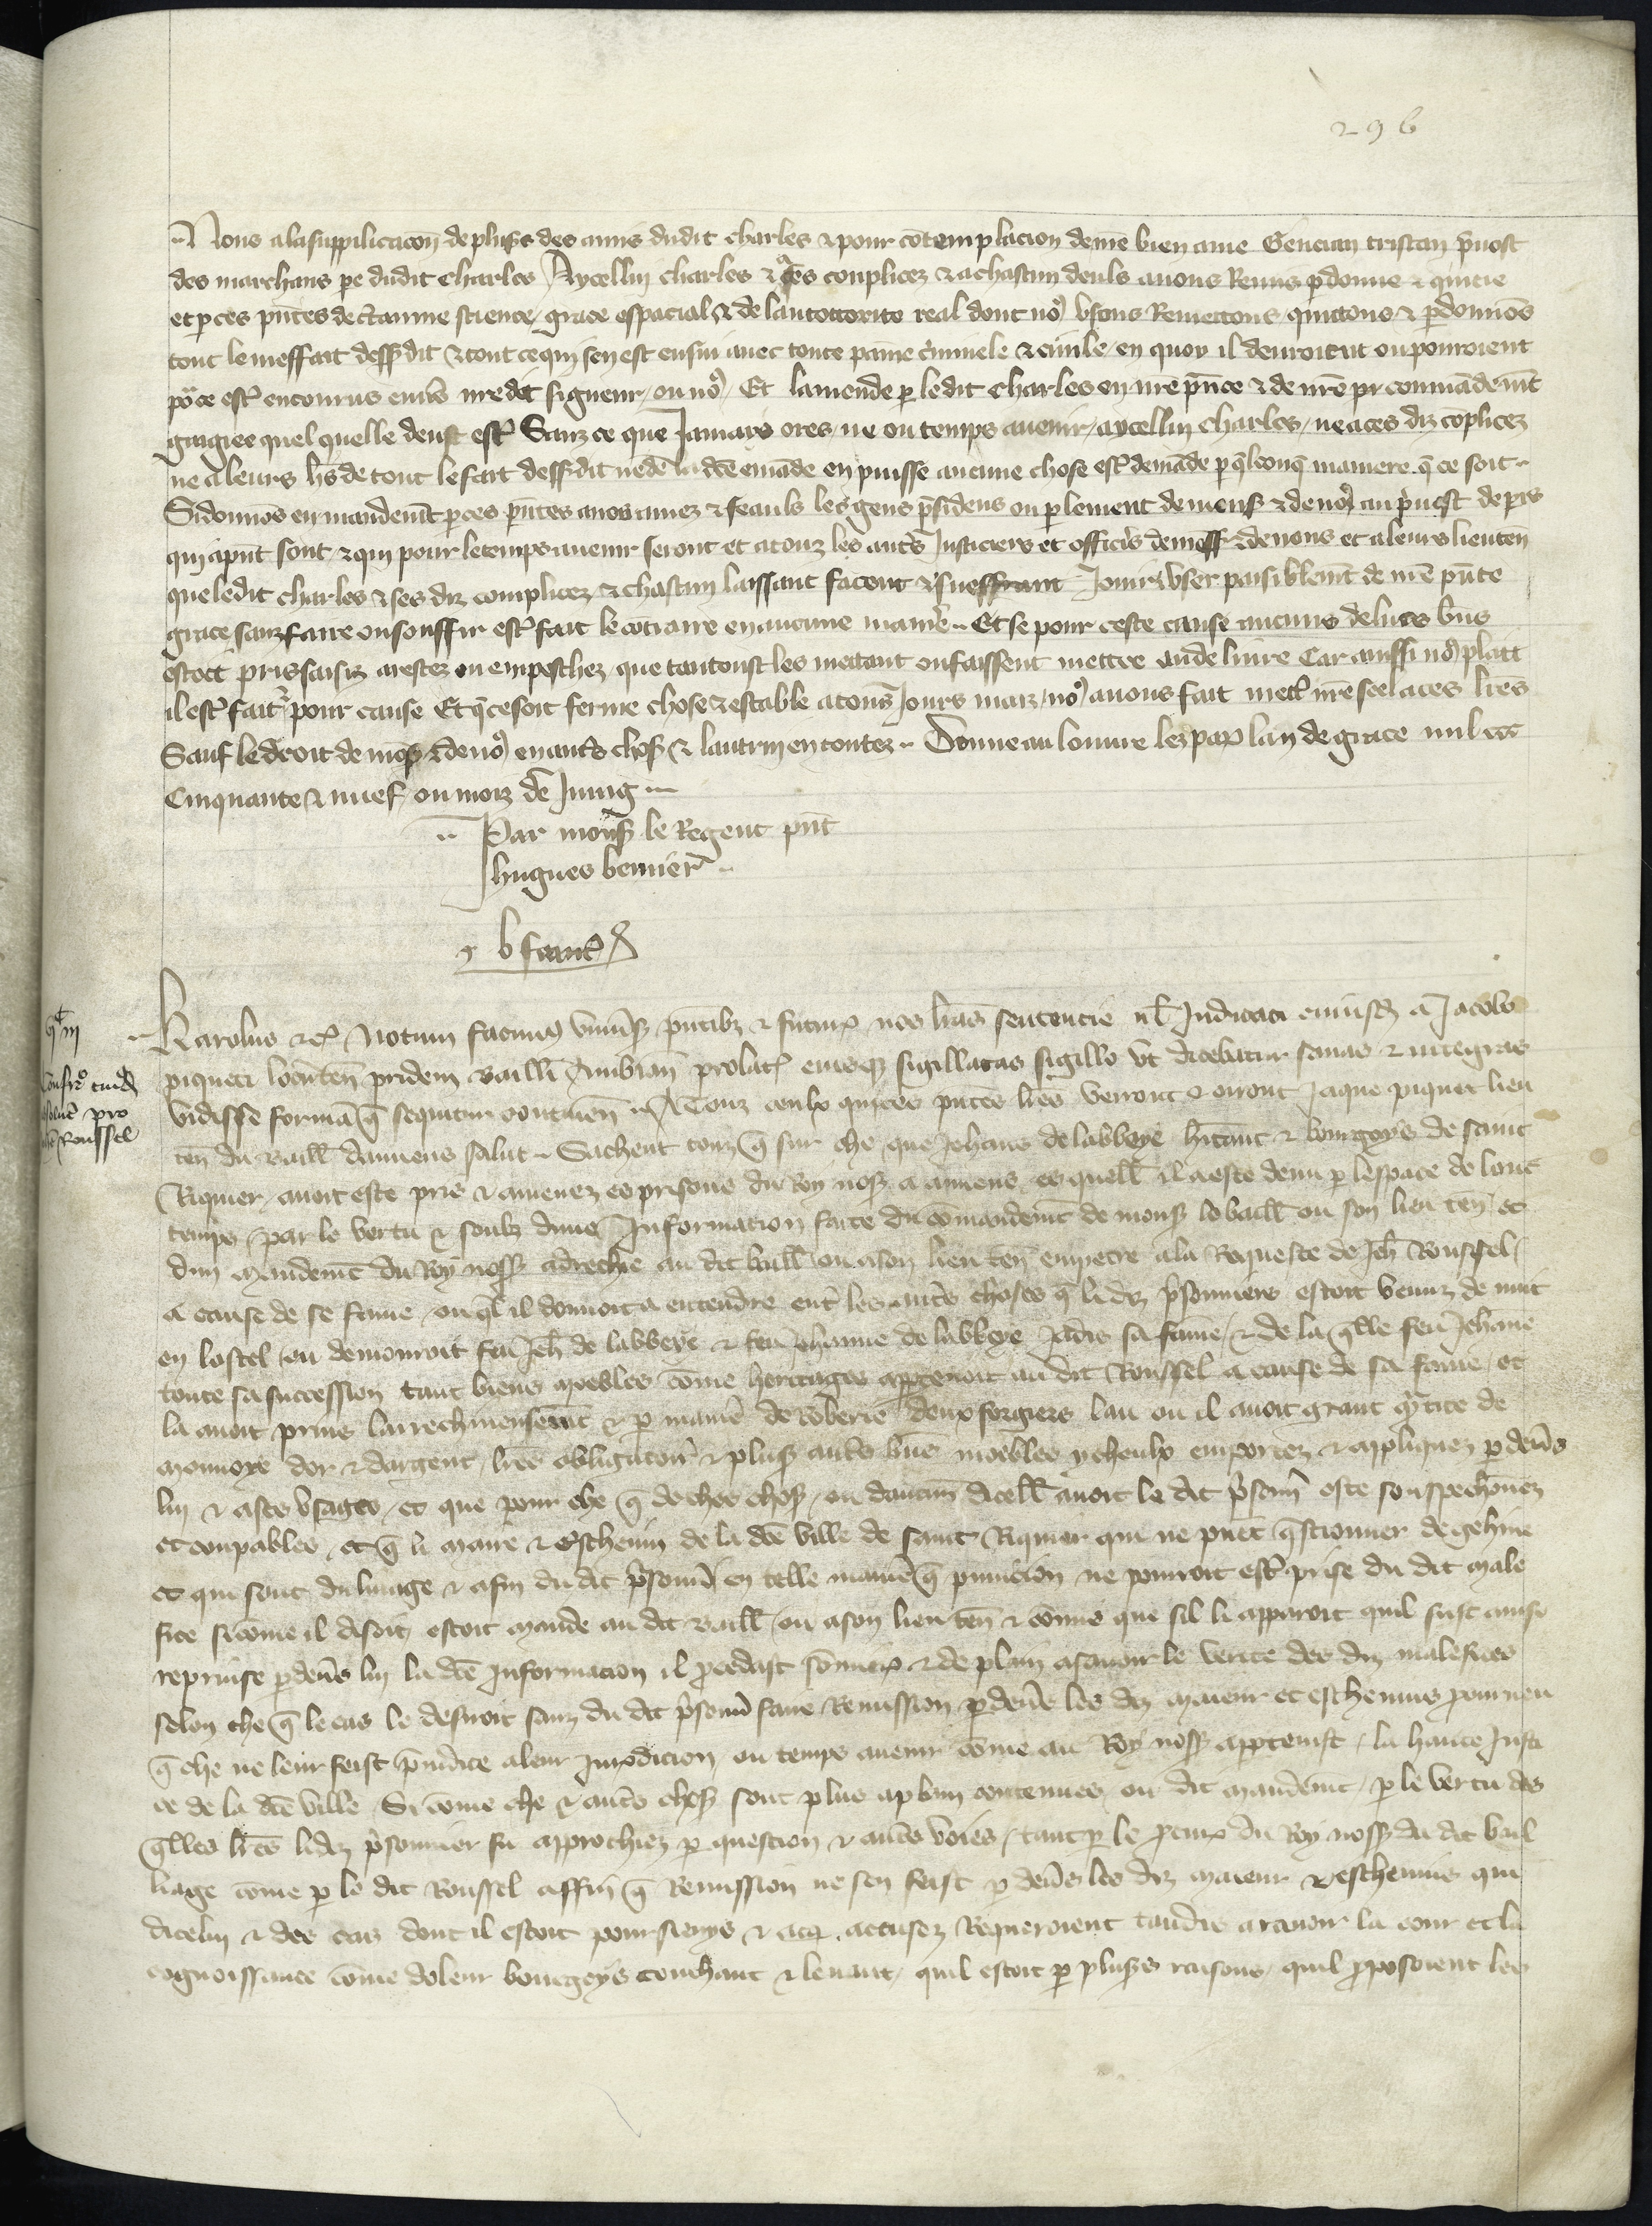 296
Nous a la supplicacon de plus͛s des amis dudit charles & pour cōtemplacion de n̄re bien ame Gencian tristan p̄uost
des marchans pe dudit Charles Aycellui charles & a ses conplicez & a chascun deuls auons Remis pdonne & quicte
et p ces pn̄tes de c̄taine science grace especial & de lauctorite real dont no9 vsons Remettons quittons & pdonnōs
tout le meffait dessdit & tout ce qui sen est ensui auec toute paine c̓minele & ciuile en quoy il deuroient ou pourroient
po᷑ ce est̄ encourus enūs n̄re dit signeur ou no9 Et lamende p ledit charles en n̄re pn̄ce & de n̄re pr̄ conmādemt̄
gaigiee quel quelle deust est̄ Sanz ce que Jamais ores ne ou temps auenir aycellui charles ne a ces diz coplicez
ne a leurs hr̄s de tout le fait dessdit ne de la dc̄e emāde en puisse aucune chose est̄ demāde p q̄lconq̄ maniere q̄ ce soit
Si donnōs en mandemt̄ p ces pn̄tes a nos amez & feauls les gens p̄sidens ou plement de mons͛ & de no9 au p̄uost de pis
qui apn̄t sont & qui pour le temps auenir seront et a touz les autr̄s Justiciers et offic̄rs de mons͛ & de nous et a leurs lieuten̄
que ledit charles & ses diz complicez & chascun laissant facent & sueffrant Jouir & vser paisiblemt̄ de n̄re pn̄te
grace sanz faire ou souffrir est̄ fait le cōtraire en aucune manie᷑ Et se pour ceste cause aucuns de lurs bn̄s
estoiēt pris saisiz arestez ou empeschez que tantoust les mettant ou faissent mettre au deliure Car ainssi no9 plait
il est̄ fait & pour cause Et q̄ ce soit ferme chose & estable a tous Jours maiz no9 auons fait mett̄ n̄re seel a ces lr̄es
Sauf le droit de mons͛ & de no9 en autr̄s chos͛ & lautrui en toutez Donne au louure lez par̄ lan de grace mil ccc
Cinquante & nuef ou mois de Juing
Par mons͛ le Regent pn̄t
hugues bernier
Karolus &c̄ Notum facim9 vniu̓s͛ pn̄tib3 & futur̄ nos lr̄as sentencie ul̄ Judicati cuiusd̄ a Jacobo
piqueti locūten̄ pridem bailli Ambian̄ prolat̄ eiusq3 sigillatas sigillo vt dicebatur sanas & integras
vidisse formā q̄ sequitur contiuen̄ A Touz ceulx qui ces pn̄tes lr̄es verront & oiront Jaque piquet lieu
ten̄ du baill̄ damiens salut Sachent touz q̄ sur che que Jehans de labbeye h̄itant & bourgoys de saint
Riquier auoit este pris & amenez es prisons du Roy nos͛ a amiens es quell̄ il a este detenu p lespace de lonc
temps par le vertu & soubz dune Information faite du cōmandemt̄ de mons͛ le baill̄ ou son lieu ten̄ et
dun mandemt̄ du Roy noss͛ adrechie au dit baill̄ ou a son lieu ten̄ empetre a la Requeste de Jeh̄ Roussel
a cause de se fame ou q̄l il donnoit a entendre ent̄ les autr̄s choses q̄ li diz p̄sonniers estoit venuz de nuit
en lostel ou demouroit feu Jeh̄ de labbeye & feu Jehanne de labbeye Jadis sa fame & de la q̄lle feu Jehāne
toute sa succession tant biens moebles cōme heritages apptenoit au dit Roussel a cause de sa fame et
la auoit prins larrechineusemt̄ & p manie᷑ de roberie deux forgiers lau ou il auoit grant qᵃtite de
monnoye dor & dargent lr̄es obligatoir̄ & plus͛ autr̄s bn̄s moebles ycheulx emportez & appliquez p deūs
lui & a ses vsages et que pour che q̄ de ches chos͛ ou daucun dicell̄ auoit le dit p̄sonn̄ este souspechōnez
et coupables et q̄ li maire & escheuin de la dc̄e ville de saint Riquier qui ne puet q̄stionner de gehine
et qui sont du linage & afin du dit p̄sonn̄ en telle manie᷑ q̄ punicion ne pourroit est̄ prise du dit male
fice si cōme il disoit estoit mande au dit baill̄ ou a son lieu ten̄ & cōmis que sil li apparoit quil fust ainsi
reprinse p deūs lui la dc̄e Information il p̄cedast sōmierem̄ & de plain a sauoir le verite des diz malefices
selon che q̄ le cas le desiroit sanz du dit p̄sonn̄ faire Remission p deūs les diz maieur et escheuins pourueu
q̄ che ne leur feist p̄iudice a leur Juridicion ou temps auenir cōme au Roy noss͛ apptenist la haute Justi
ce de la dc̄e ville Si cōme che & autr̄s chos͛ sont plus aplain contenues ou dit mandemt̄ p le vertu des
q̄lles lr̄es lidiz p̄sonnier fu approchiez p question & autr̄s voies tant p le p̄cur̄ du Roy noss͛ du dit bail
liage cōme p le dit Roussel affin q̄ Remission ne sen feist p deūs les diz maieur & escheuins qui
dicelui & des cas dont il estoit poursieuys & accusez Requeroient tandis a rauoir la cour et la
cognoissance cōme de leur bourgoys couchant & leuant quil estoit p plus͛s raisons quil p̄posoient les